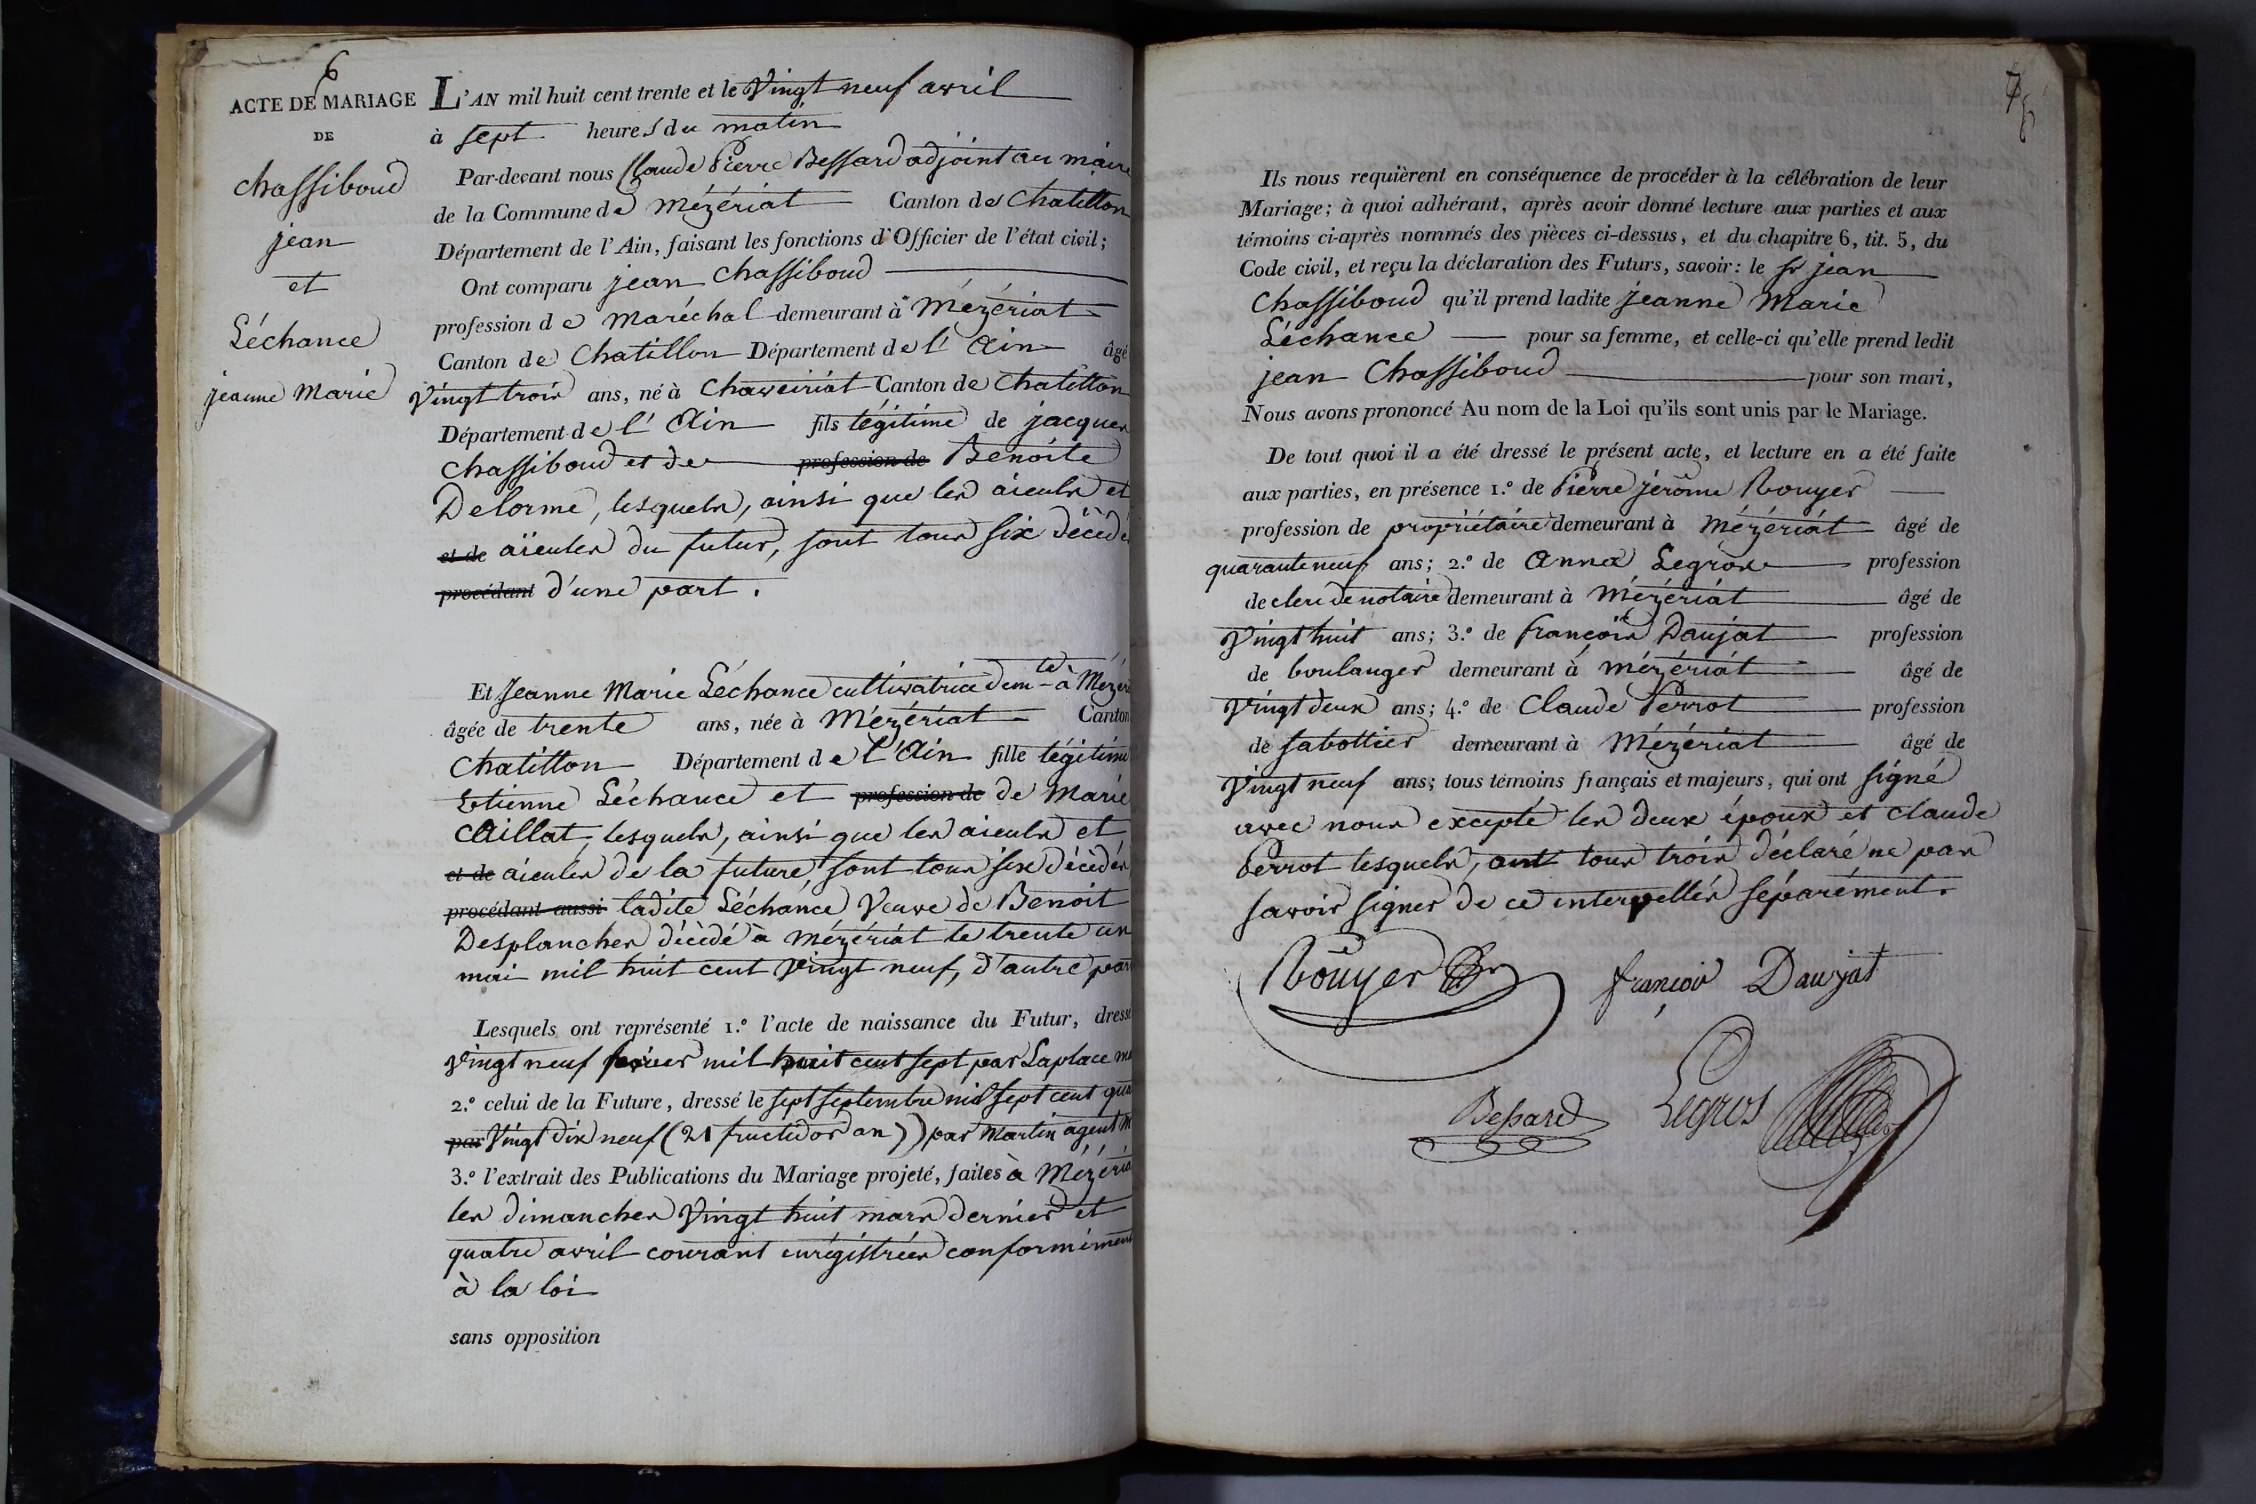 6
ACTE DE MARIAGE
DE
Chassiboud
jean
et
Léchance
jeanne Marie
L'AN mil huit cent trente et le Vingt neuf avril
à sept heures du matin
Par-devant nous Claude Pierre Bessard adjoint au maire
de la Commune de Mézériat Canton de Chatillon
Département de l'Ain, faisant les fonctions d'Officier de l'état civil;
Ont comparu jean Chassiboud
profession de Maréchal demeurant à Mézériat
Canton de Chatillon Département de l'Ain âgé
Vingt trois ans, né à Chaveiriat Canton de Chatillon
Département de l'Ain fils légitime de jacques
Chassiboud et de profession de Benoite
Delorme, lesquels, ainsi que les aieuls et
et de aïeules du futur, sont tous six décédé
procédant d'une part.
Et Jeanne Marie Léchance cultivatrice dem te à Mézéri
âgée de trente ans, née à Mézériat Canton
Chatillon Département de l'Ain fille légitime
Etienne Léchance et profession de de Marie
Aillat, lesquels, ainsi que les aieuls et
et de aieules de la future sont tous six décédés
procédant aussi ladite Léchance Veuve de Benoit
Desplanches décédé à Mézériat le trente un
mai mil huit cent Vingt neuf, d'autre par
Lesquels ont représenté 1.° l'acte de naissance du Futur, dressé
Vingt neuf mil huit cent sept par Laplace
2.° celui de la Future, dressé le sept septembre mil sept cent qua
par Vingt dix neuf (21 fructidor an 7) par Martin agent M
3.° l'extrait des Publications du Mariage projeté, faites à Mézéria
les dimanches Vingt huit mars dernier et
quatre avril courant enrégistrées conformément
à la loi
sans opposition
Ils nous requièrent en conséquence de procéder à la célébration de leur
Mariage; à quoi adhérant, après avoir donné lecture aux parties et aux
témoins ci-après nommés des pièces ci-dessus, et du chapitre 6, tit. 5, du
Code civil, et reçu la déclaration des Futurs, savoir: le sr jean
Chassiboud qu'il prend ladite jeanne Marie
Léchance pour sa femme, et celle-ci qu'elle prend ledit
jean Chassiboud pour son mari,
Nous avons prononcé Au nom de la Loi qu'ils sont unis par le Mariage.
De tout quoi il a été dressé le présent acte, et lecture en a été faite
aux parties, en présence 1.° de Pierre jérôme Rouyer
profession de propriétaire demeurant à Mézériat âgé de
quarante neuf ans; 2.° de Legros profession
de clerc de notaire demeurant à Mézériat âgé de
Vingt huit ans; 3.° de françois Daujat profession
de boulanger demeurant à Mézériat âgé de
Vingt deux ans; 4.° de Claude Perrot profession
de sabottier demeurant à Mézériat âgé de
Vingt neuf ans; tous témoins français et majeurs, qui ont signé
avec nous excepté les deux époux et Claude
Perrot lesquels, ont tous trois déclaré ne pas
savoir signer de ce interpellés séparément.
Rouyer
françois Daujat
Bessard
Legros